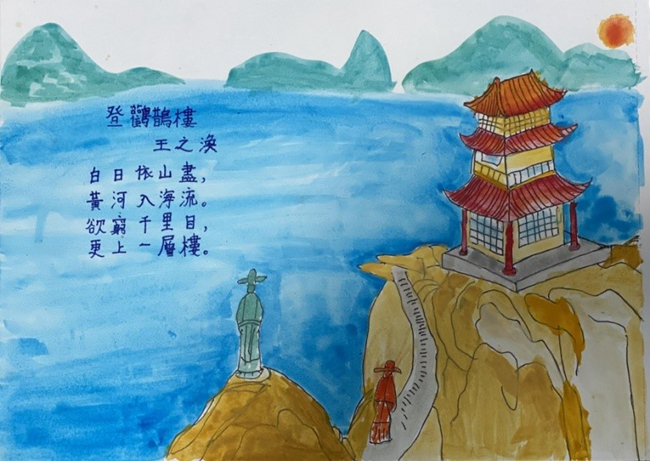 登鸛鵲樓
王之渙
白日依山盡，
黃河入海流。
欲窮千里目，
更上一層樓。